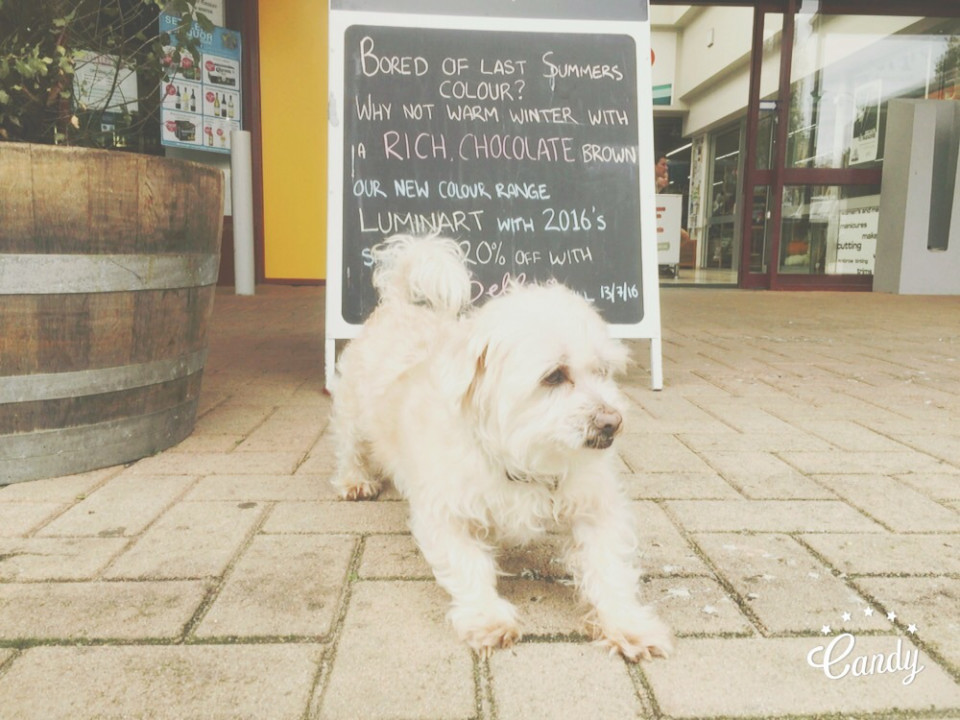 BORED OF LAST SUMMERS
COLOUR?
WHY NOT WARM WINTER WITH
A RICH, CHOCOLATE BROWN
OUR NEW COLOUR RANGE
LUMINART WITH 2016'S
20% OFF WITH
13/7/16
cutting
Candy